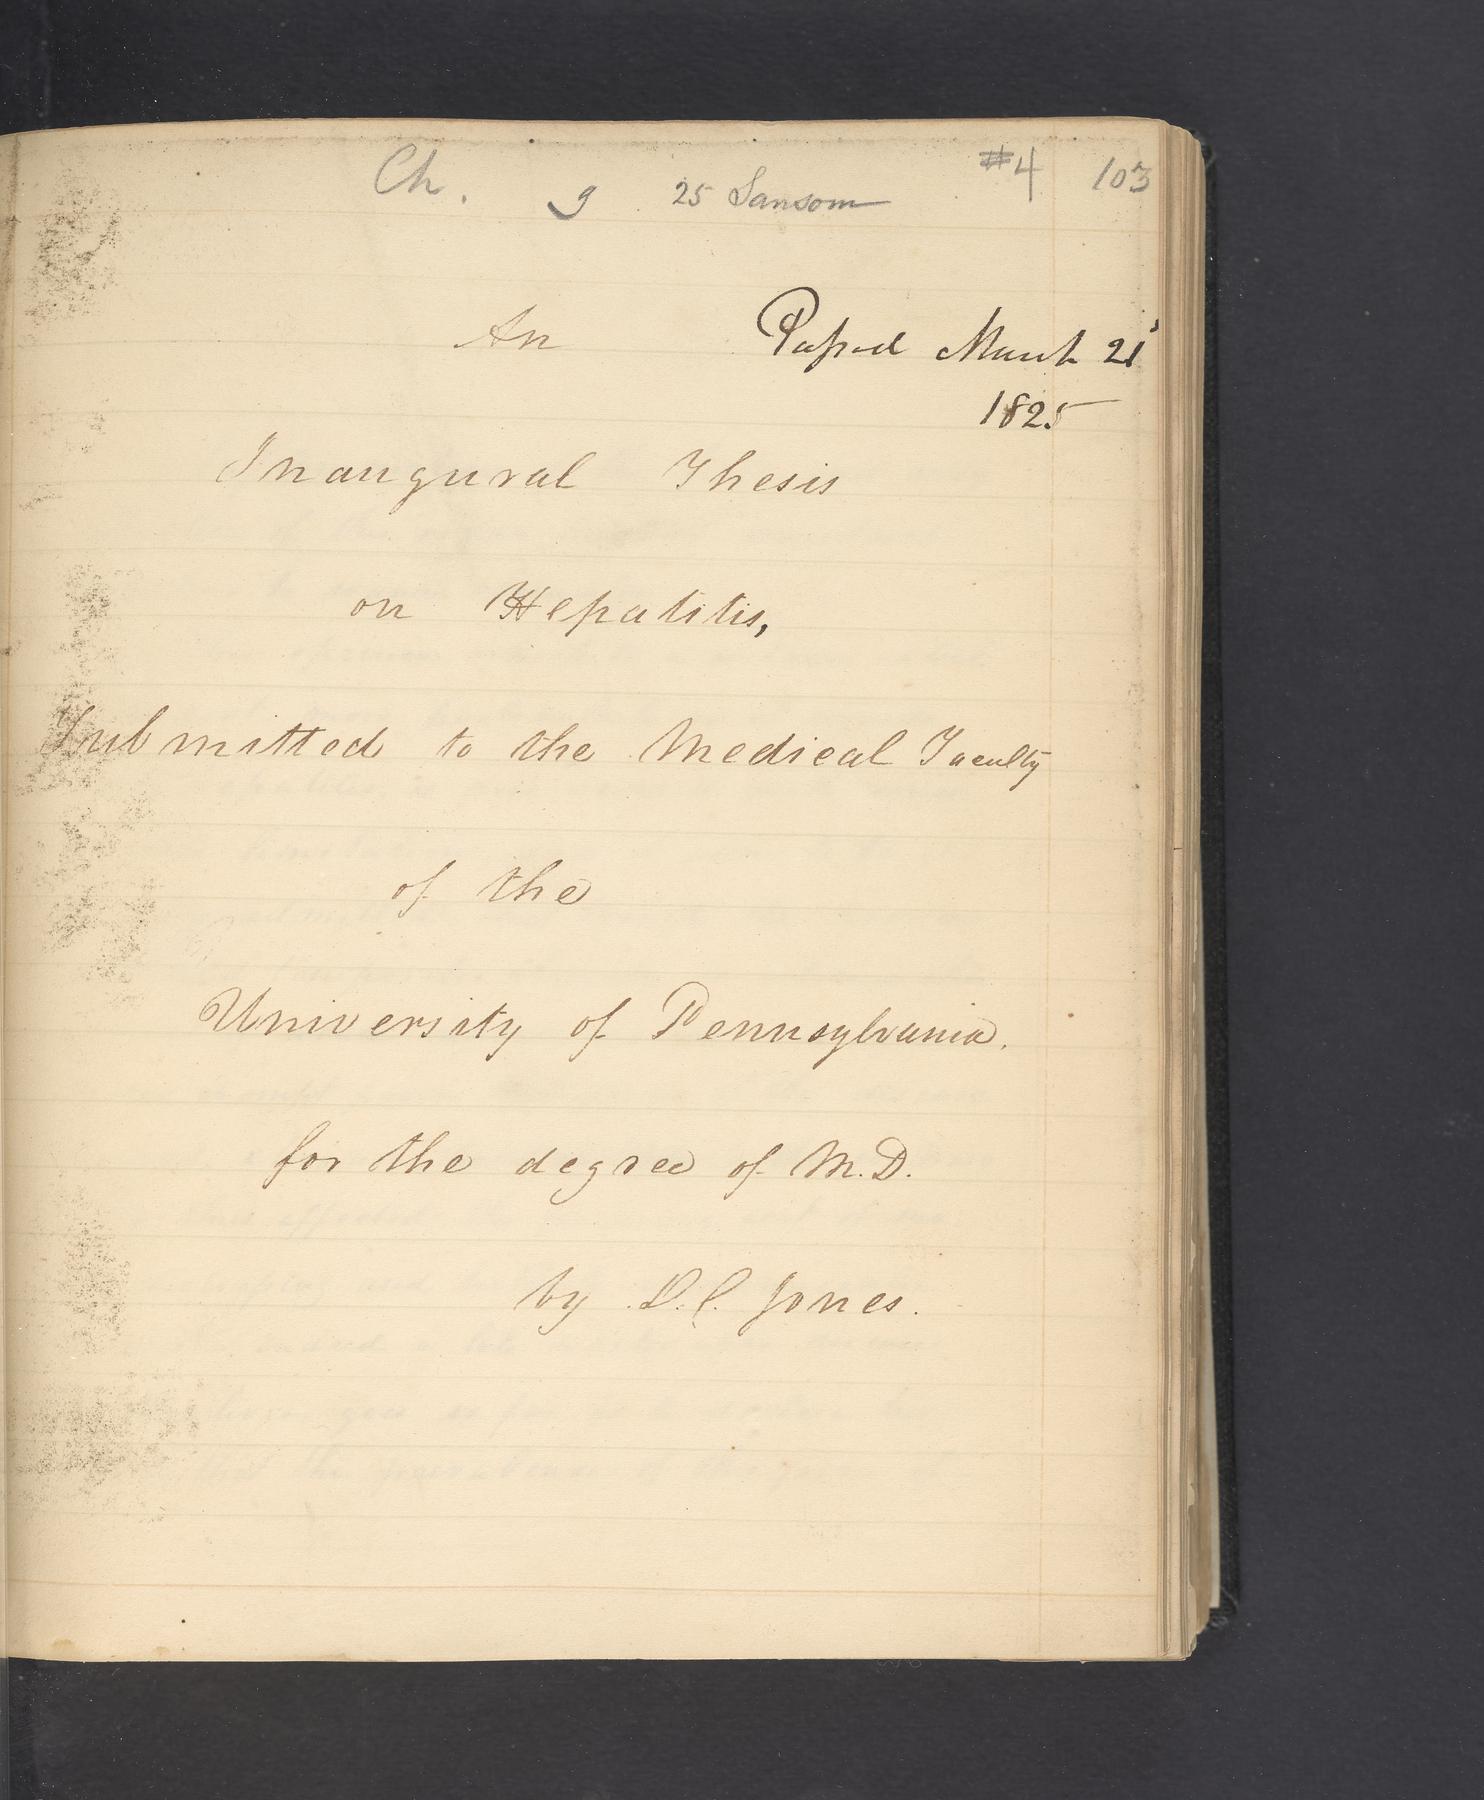 Ch. 9 25 Sansom #4 103
An Passed March 21
1825
Inaugural Thesis
on Hepatitis,
Submitted to the Medical Faculty
of the
University of Pennsylvania.
for the degree of M.D.
by D.C. Jones.